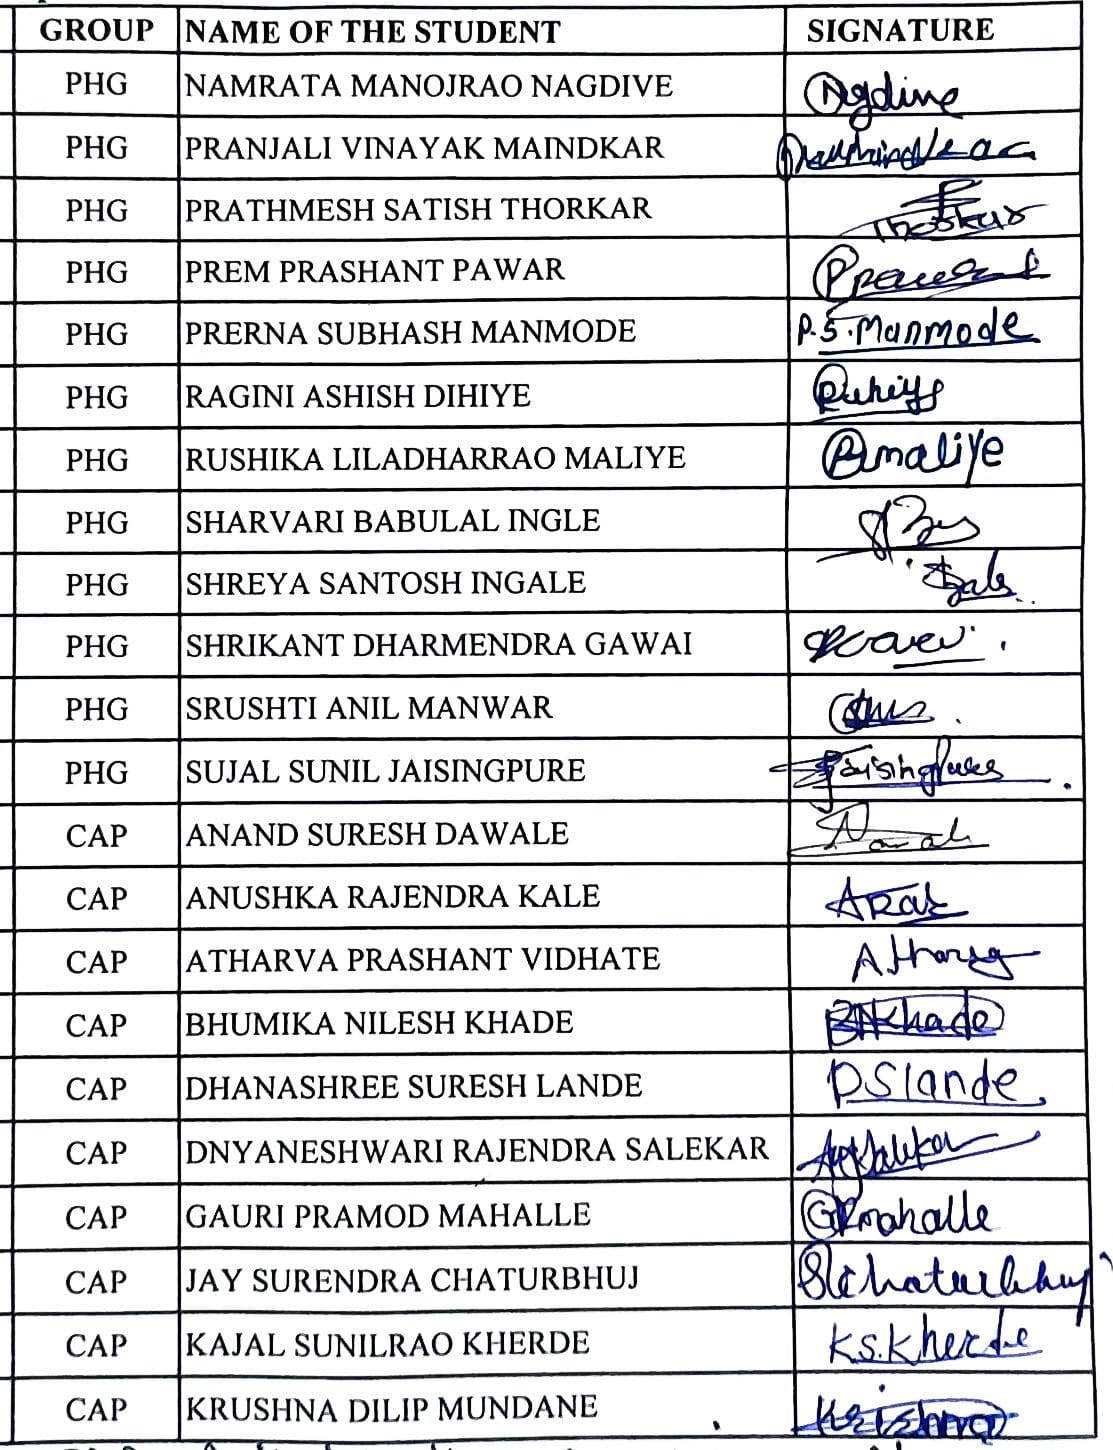 GROUP NAME OF THE STUDENT SIGNATURE
PHG NAMRATA MANOJRAO NAGDIVE
PHG PRANJALI VINAYAK MAINDKAR
PHG PRATHMESH SATISH THORKAR Thorkar
PHG PREM PRASHANT PAWAR
PHG PRERNA SUBHASH MANMODE P.S.Manmode
PHG RAGINI ASHISH DIHIYE
PHG RUSHIKA LILADHARRAO MALIYE Rmaliye
PHG SHARVARI BABULAL INGLE
PHG SHREYA SANTOSH INGALE
PHG SHRIKANT DHARMENDRA GAWAI
PHG SRUSHTI ANIL MANWAR
PHG SUJAL SUNIL JAISINGPURE
CAP ANAND SURESH DAWALE
CAP ANUSHKA RAJENDRA KALE
CAP ATHARVA PRASHANT VIDHATE
CAP BHUMIKA NILESH KHADE BNKhade
CAP DHANASHREE SURESH LANDE DSlande
CAP DNYANESHWARI RAJENDRA SALEKAR
CAP GAURI PRAMOD MAHALLE GPmahalle
CAP JAY SURENDRA CHATURBHUJ
CAP KAJAL SUNILRAO KHERDE K.S.Kherde
CAP KRUSHNA DILIP MUNDANE Krishna